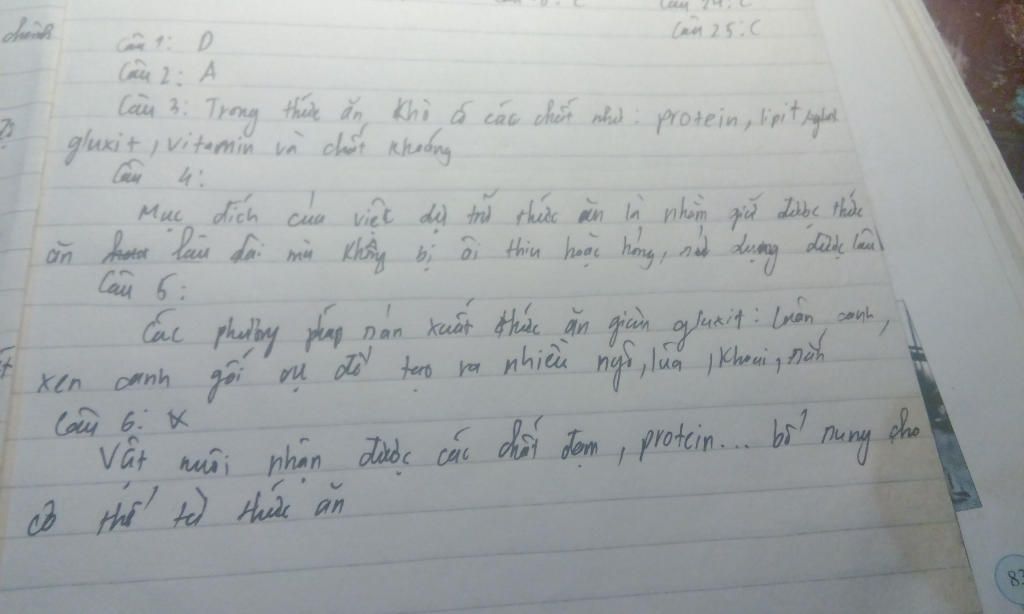 Câu 24: C
Câu 25: C
chính
Câu 1: D
Câu 2: A
Câu 3: Trong thức ăn khô có các chất như: protein, lipit,
gluxit, vitamin và chất khoáng
Câu 4:
Mục đích của việt dự trữ thức ăn là nhằm giữ được thức
ăn lâu dài mà không bị ôi thiu hoặc hỏng, sử dụng được lâu
Câu 5:
Các phương pháp sản xuất thức ăn giàu gluxit: Luân canh,
xen canh gối vụ để tạo ra nhiều ngô, lúa, khoai, sắn
Câu 6:
Vật nuôi nhận được các chất đạm, protein... bổ sung cho
cơ thể từ thức ăn
83